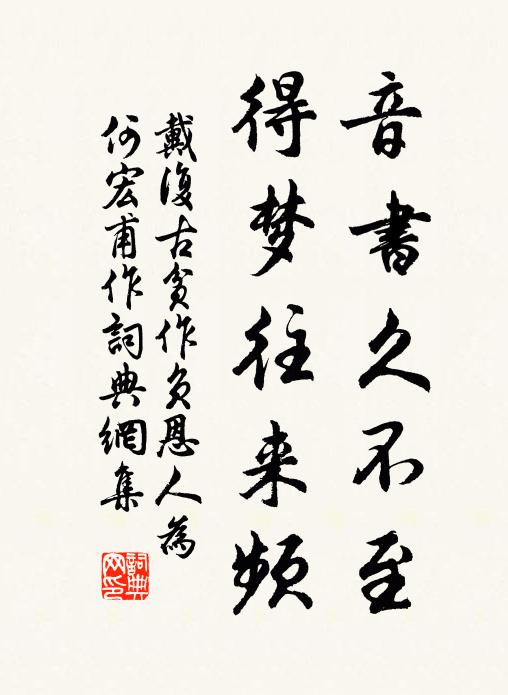 音書久不至
得梦往来頻
戴復古貧作負恩人為
何宏甫作詞典網集
詞典网印